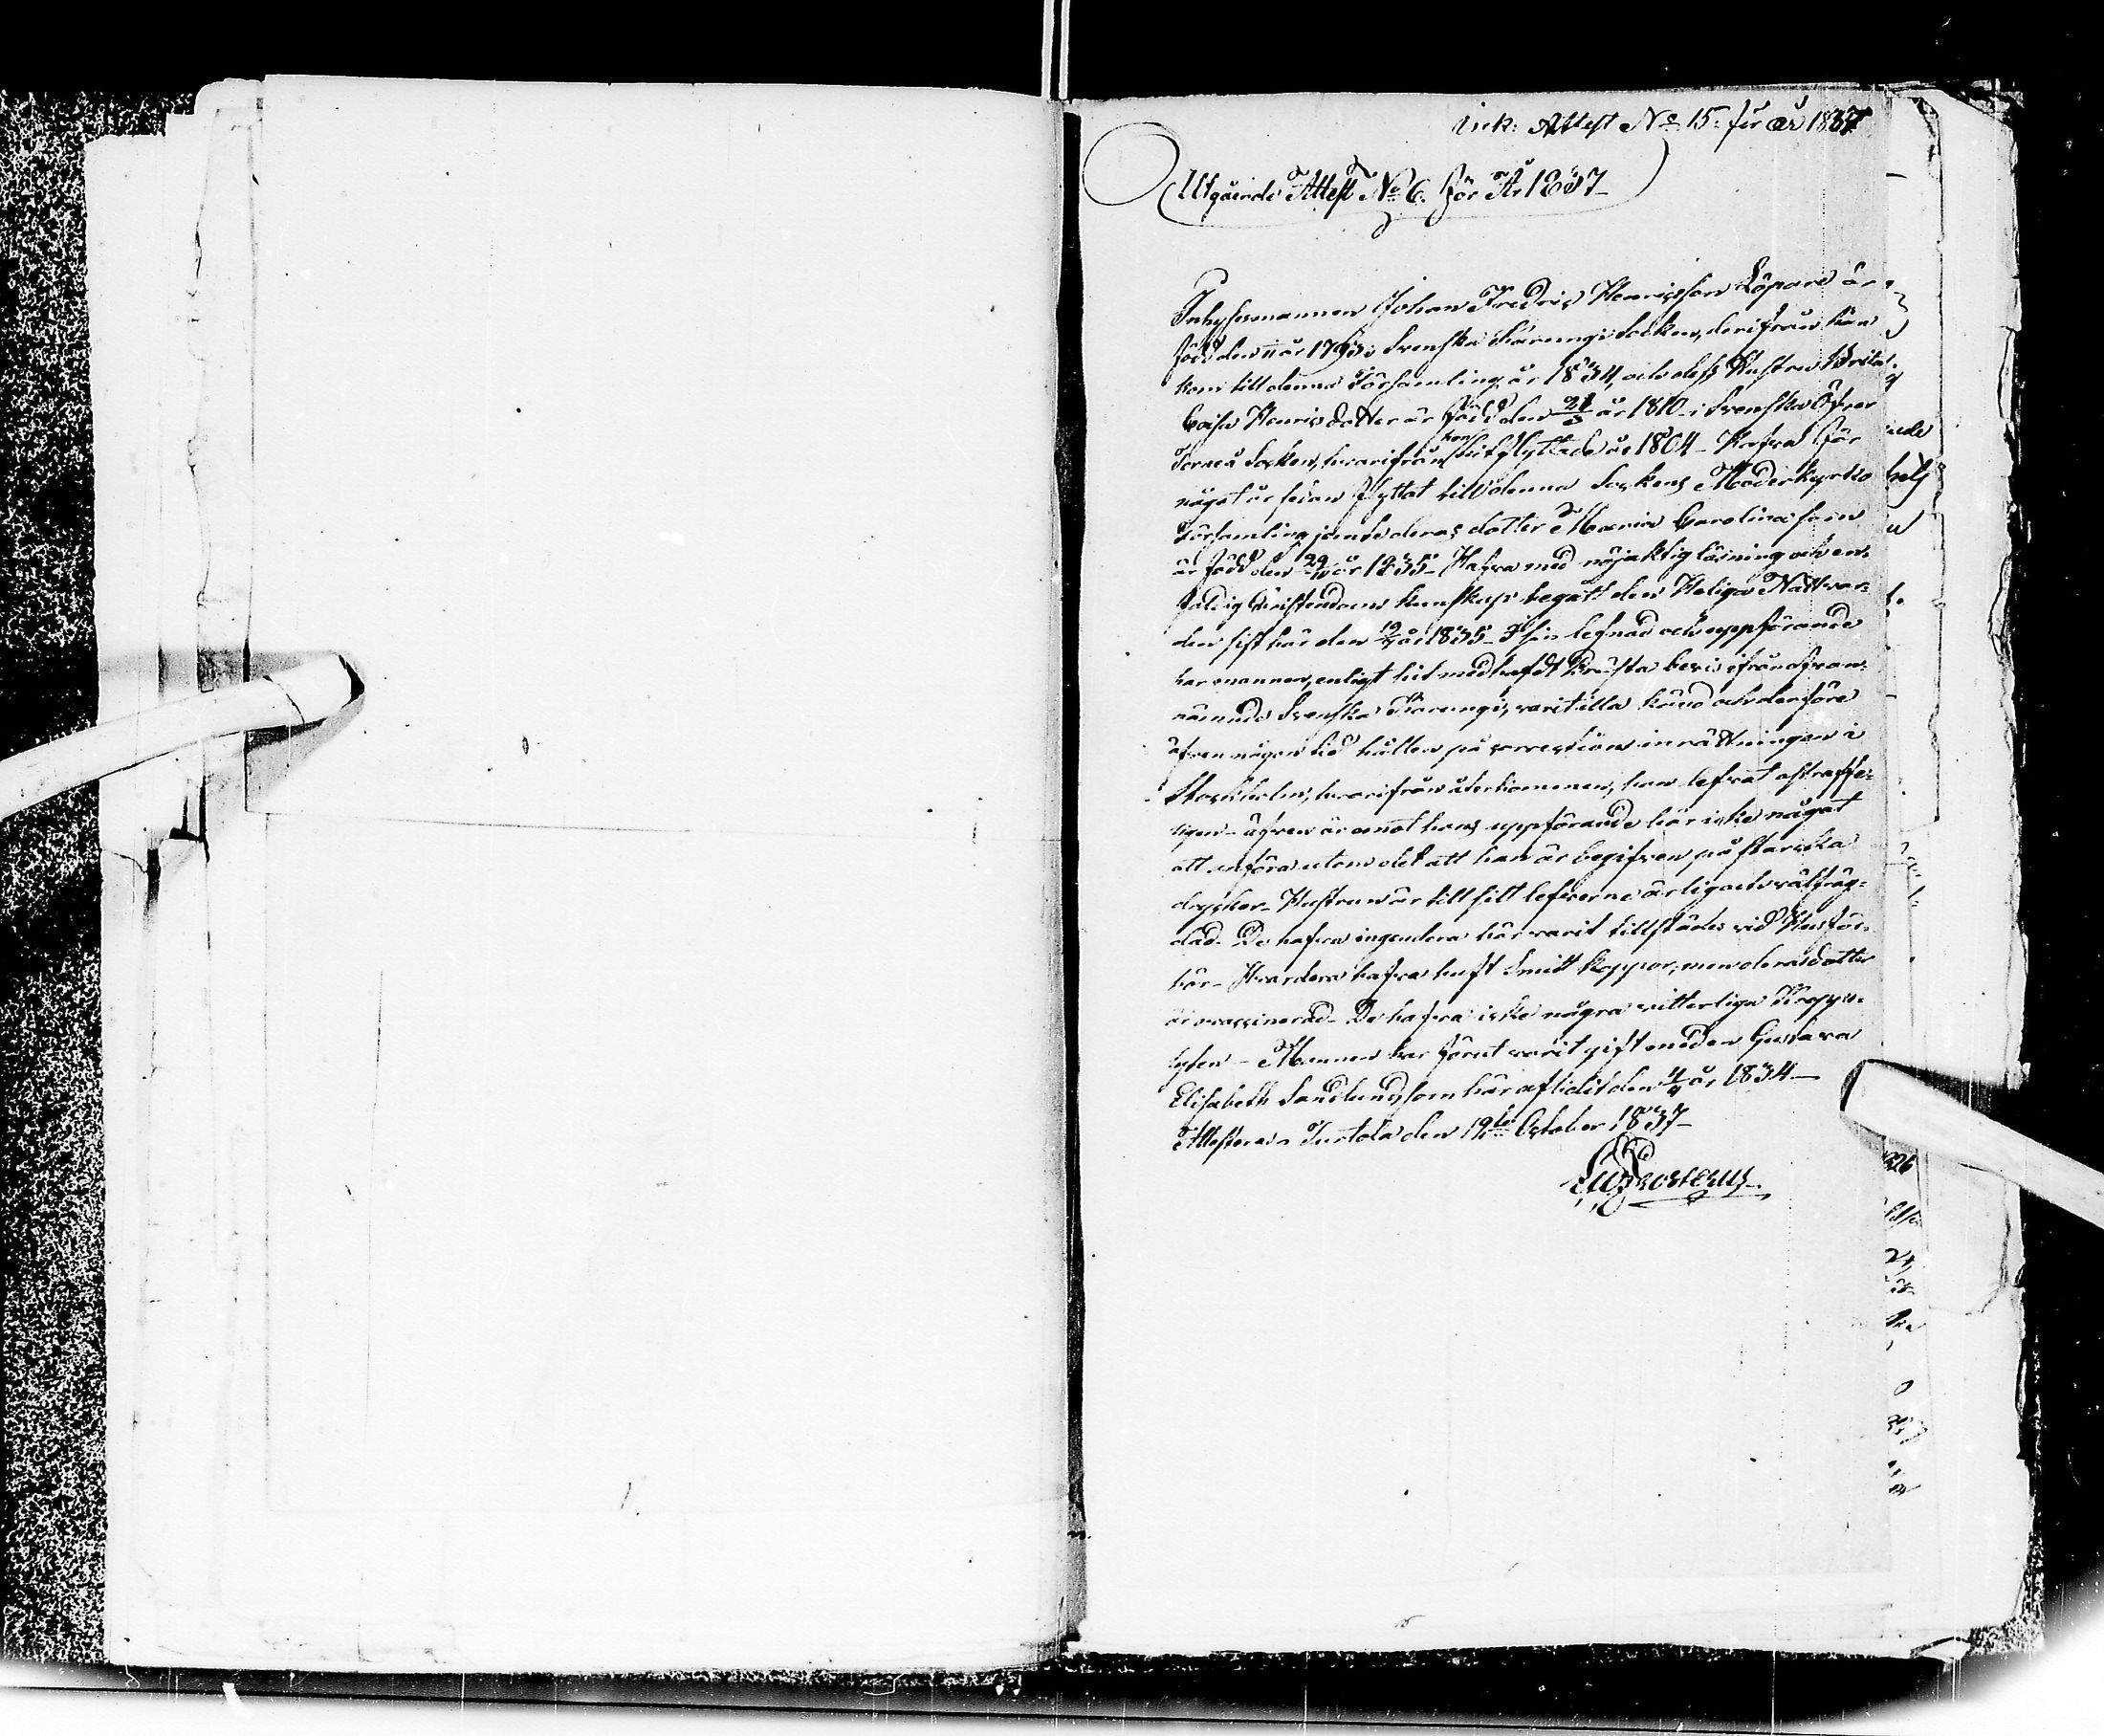 Ink: Attest No 15. för år 1837
Utgående Attest No 6. för År 1837
Inhysesmannen Johan Fredric Henricsson Löpare är
född den 11 år 1793 i Svenska Karungi Socken, derifrån han
kom till denna Församling år 1834, och dess Hustru Brita
Caisa Henricsdotter är född den 21/3 år 1810 i Svenska Öfver
Torneå Socken, hvarifrån hon hitflyttade år 1804 - Hafva för
något år sedan flyttat till denna Sockens Moderkyrko
Församling jemte deras dotter Maria Carolina som
är född den 29/11 år 1835 - Hafva med nöjaktig läsning och en-
faldig Christendoms kunskap begått den Heliga Nattvar-
den sist här den 19/7 år 1835 - I sin lefnad och uppförande
har mannen, enligt hit medhafdt Prästabevis ifrån ofvan-
nämnde Svenska Karungi, varit illa känd och derföre
äfven någon tid hållen på corrections inrättningen i
Stockholm, hvarifrån återkommen, han lefvat ostraffe-
ligen - äfven är emot hans uppförande här icke något
att anföra utom det att han är begifven på starcka
drycker - Hustrun är till sitt lefverne ärlig och välfräg-
dad. De hafva ingendera här varit tillstädes vid Husför-
hör - Hvardera hafva haft Smitt Koppor, men deras dotter
är vaccinerad - De hafva icke några vitterliga Kropps-
lyten - Mannen har förut varit gift med en Gustava
Elisabeth Sandlund, som här aflidit den 4/4 år 1834 -
Attesteras Turtola den 19de October 1837 -
Frosterus